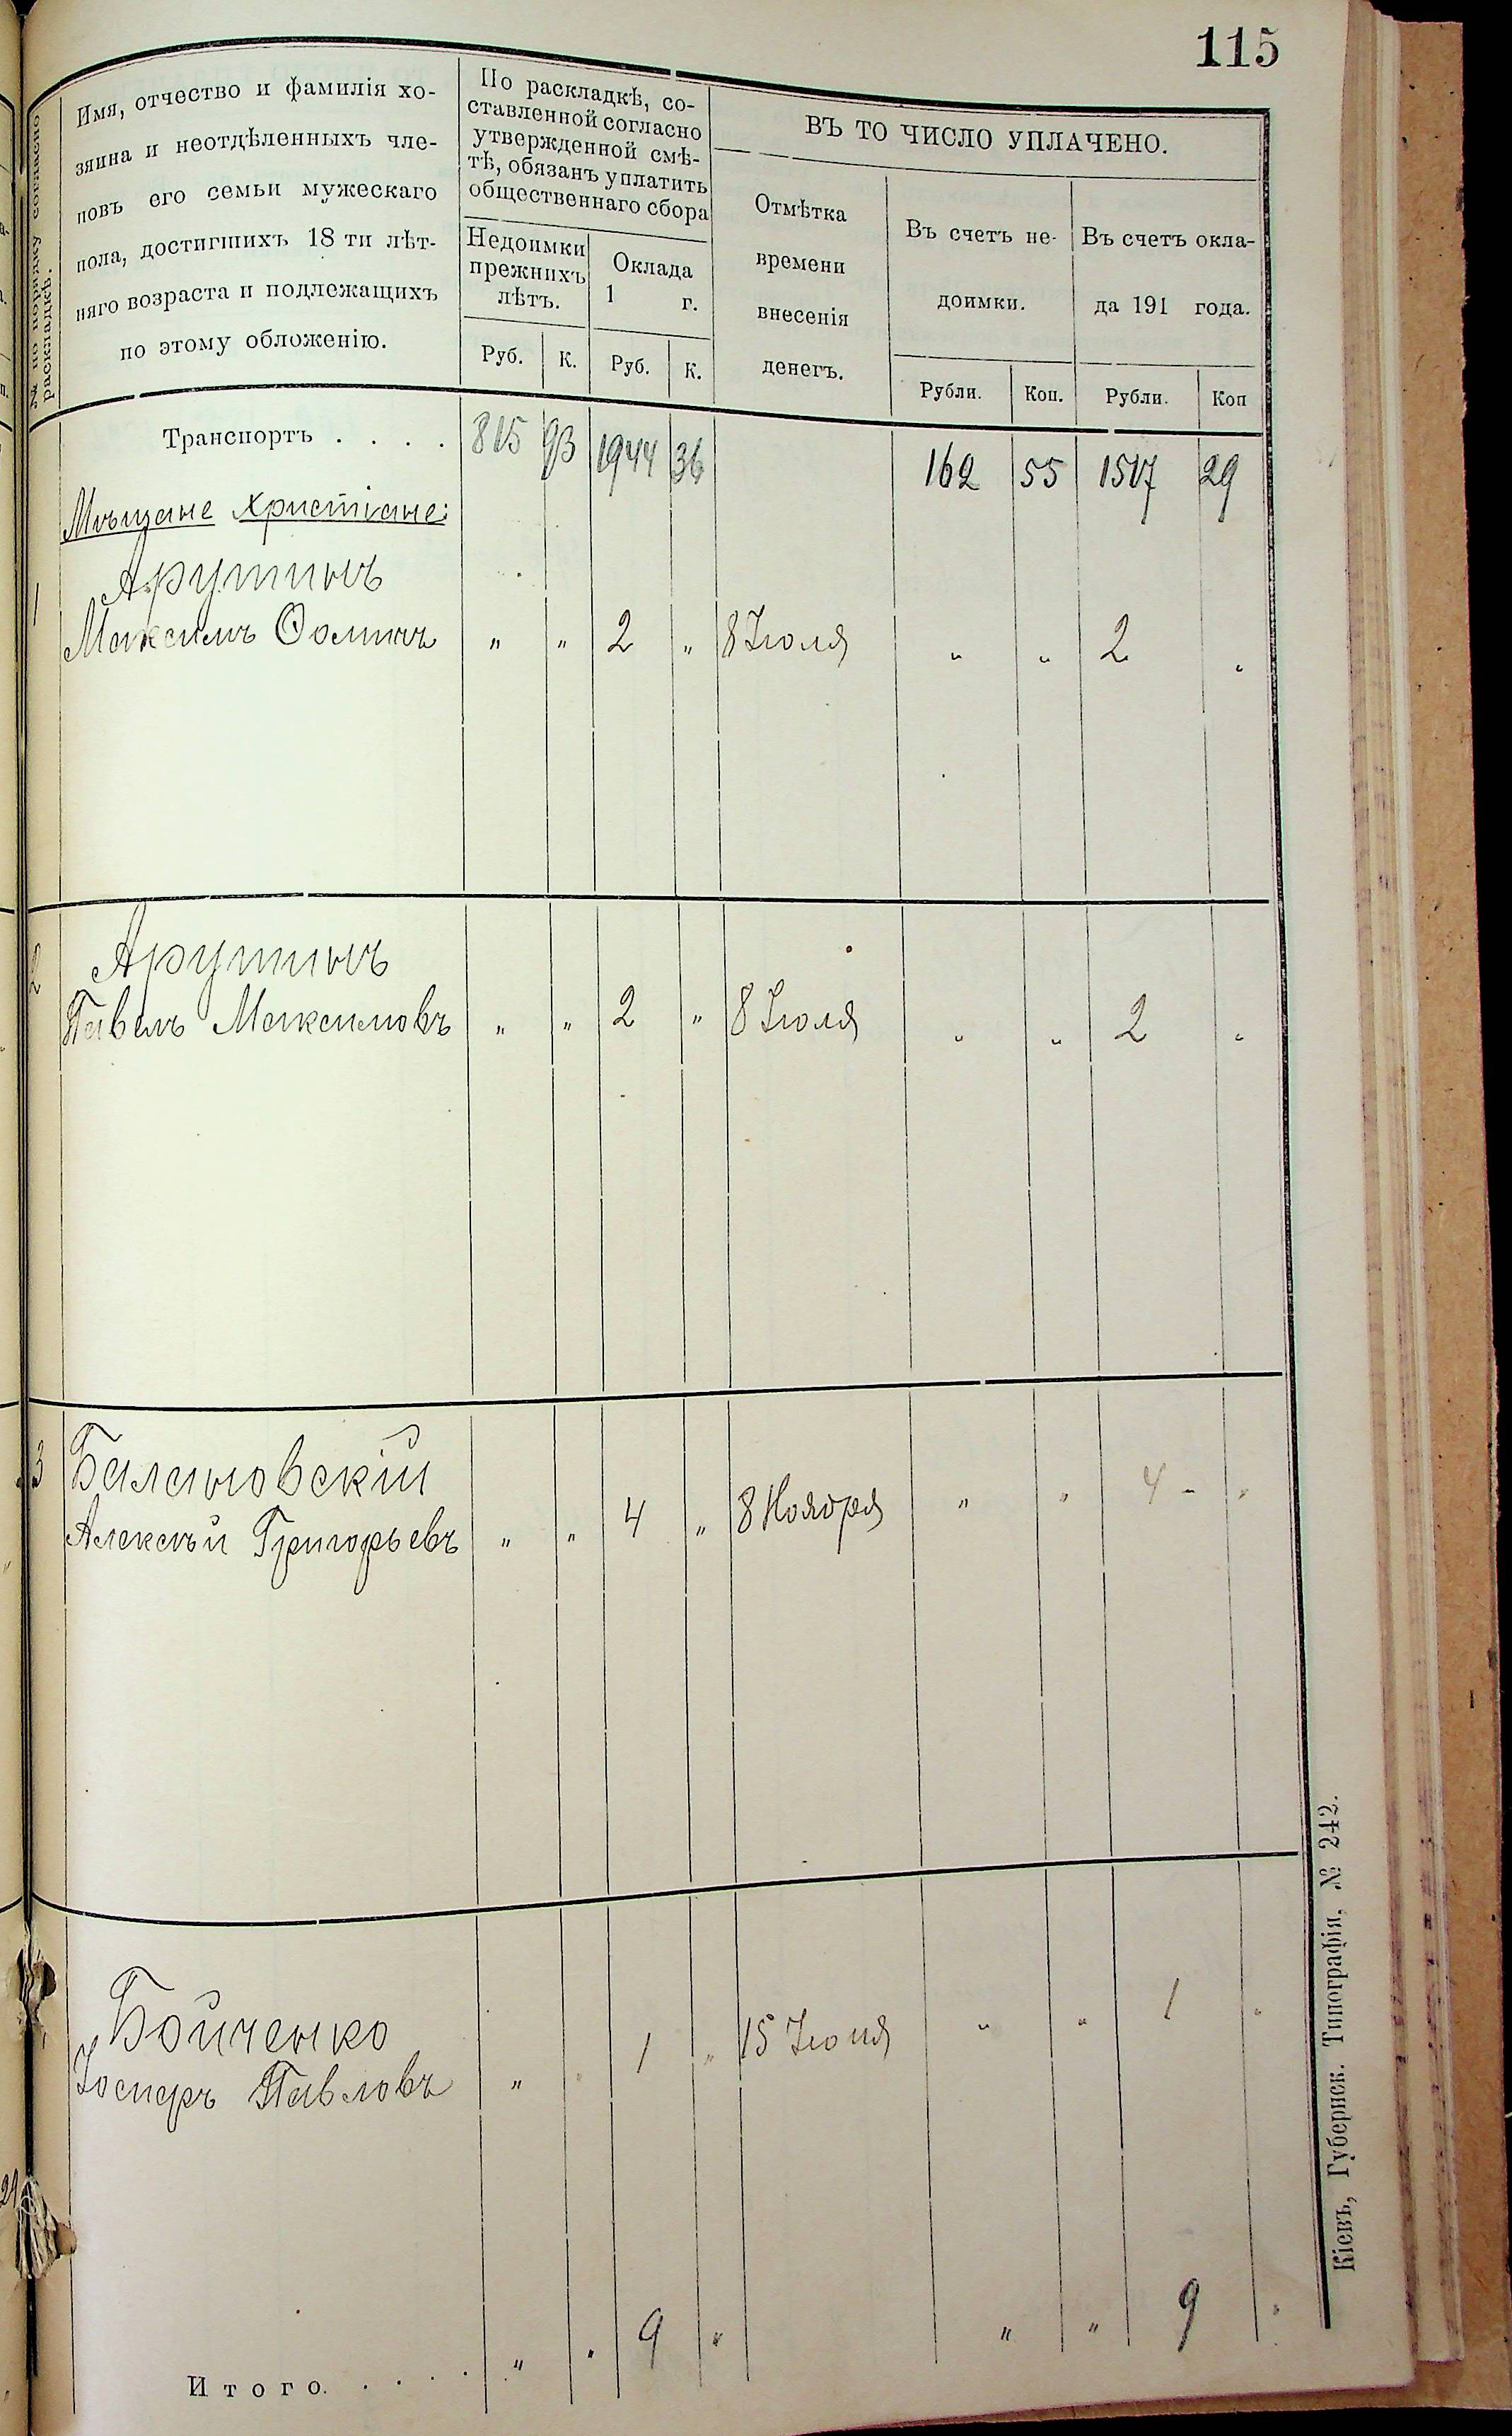 115
№ по порядку согласно раскладкѣ.
Имя, отчество и фамилія хо-
зяина и неотдѣленныхъ чле-
новъ его семьи мужескаго
пола, достигшихъ 18 ти лѣт-
няго возраста и подлежащихъ
по этому обложенію.
По раскладкѣ, со-
ставленной согласно
утвержденной смѣ-
тѣ, обязанъ уплатить
общественнаго сбора
Недоимки
прежнихъ
лѣтъ.
Оклада
1 г.
Руб. К. Руб. К.
ВЪ ТО ЧИСЛО УПЛАЧЕНО.
Отмѣтка
времени
внесенія
денегъ.
Въ счетъ не-
доимки.
Въ счетъ окла-
да 191 года.
Рубли. Коп. Рубли. Коп
Транспортъ . . . . 815 93 1944 36 162 55 1517 29
Мѣщане Христіане:
1 Арутинъ
Максимъ Ѳоминъ " " 2 " 8 Іюля " " 2 "
2 Арутинъ
Павелъ Максимовъ " " 2 " 8 Іюля " " 2 "
3 Балановскій
Алексѣй Григорьевъ " " 4 " 8 Ноября " " 4 - "
Бойченко
Іосифъ Павловъ " " 1 " 15 Іюня " " 1 "
Итого. . . . . " " 9 " " " 9 "
Кіевъ, Губернск. Типографія, № 242.